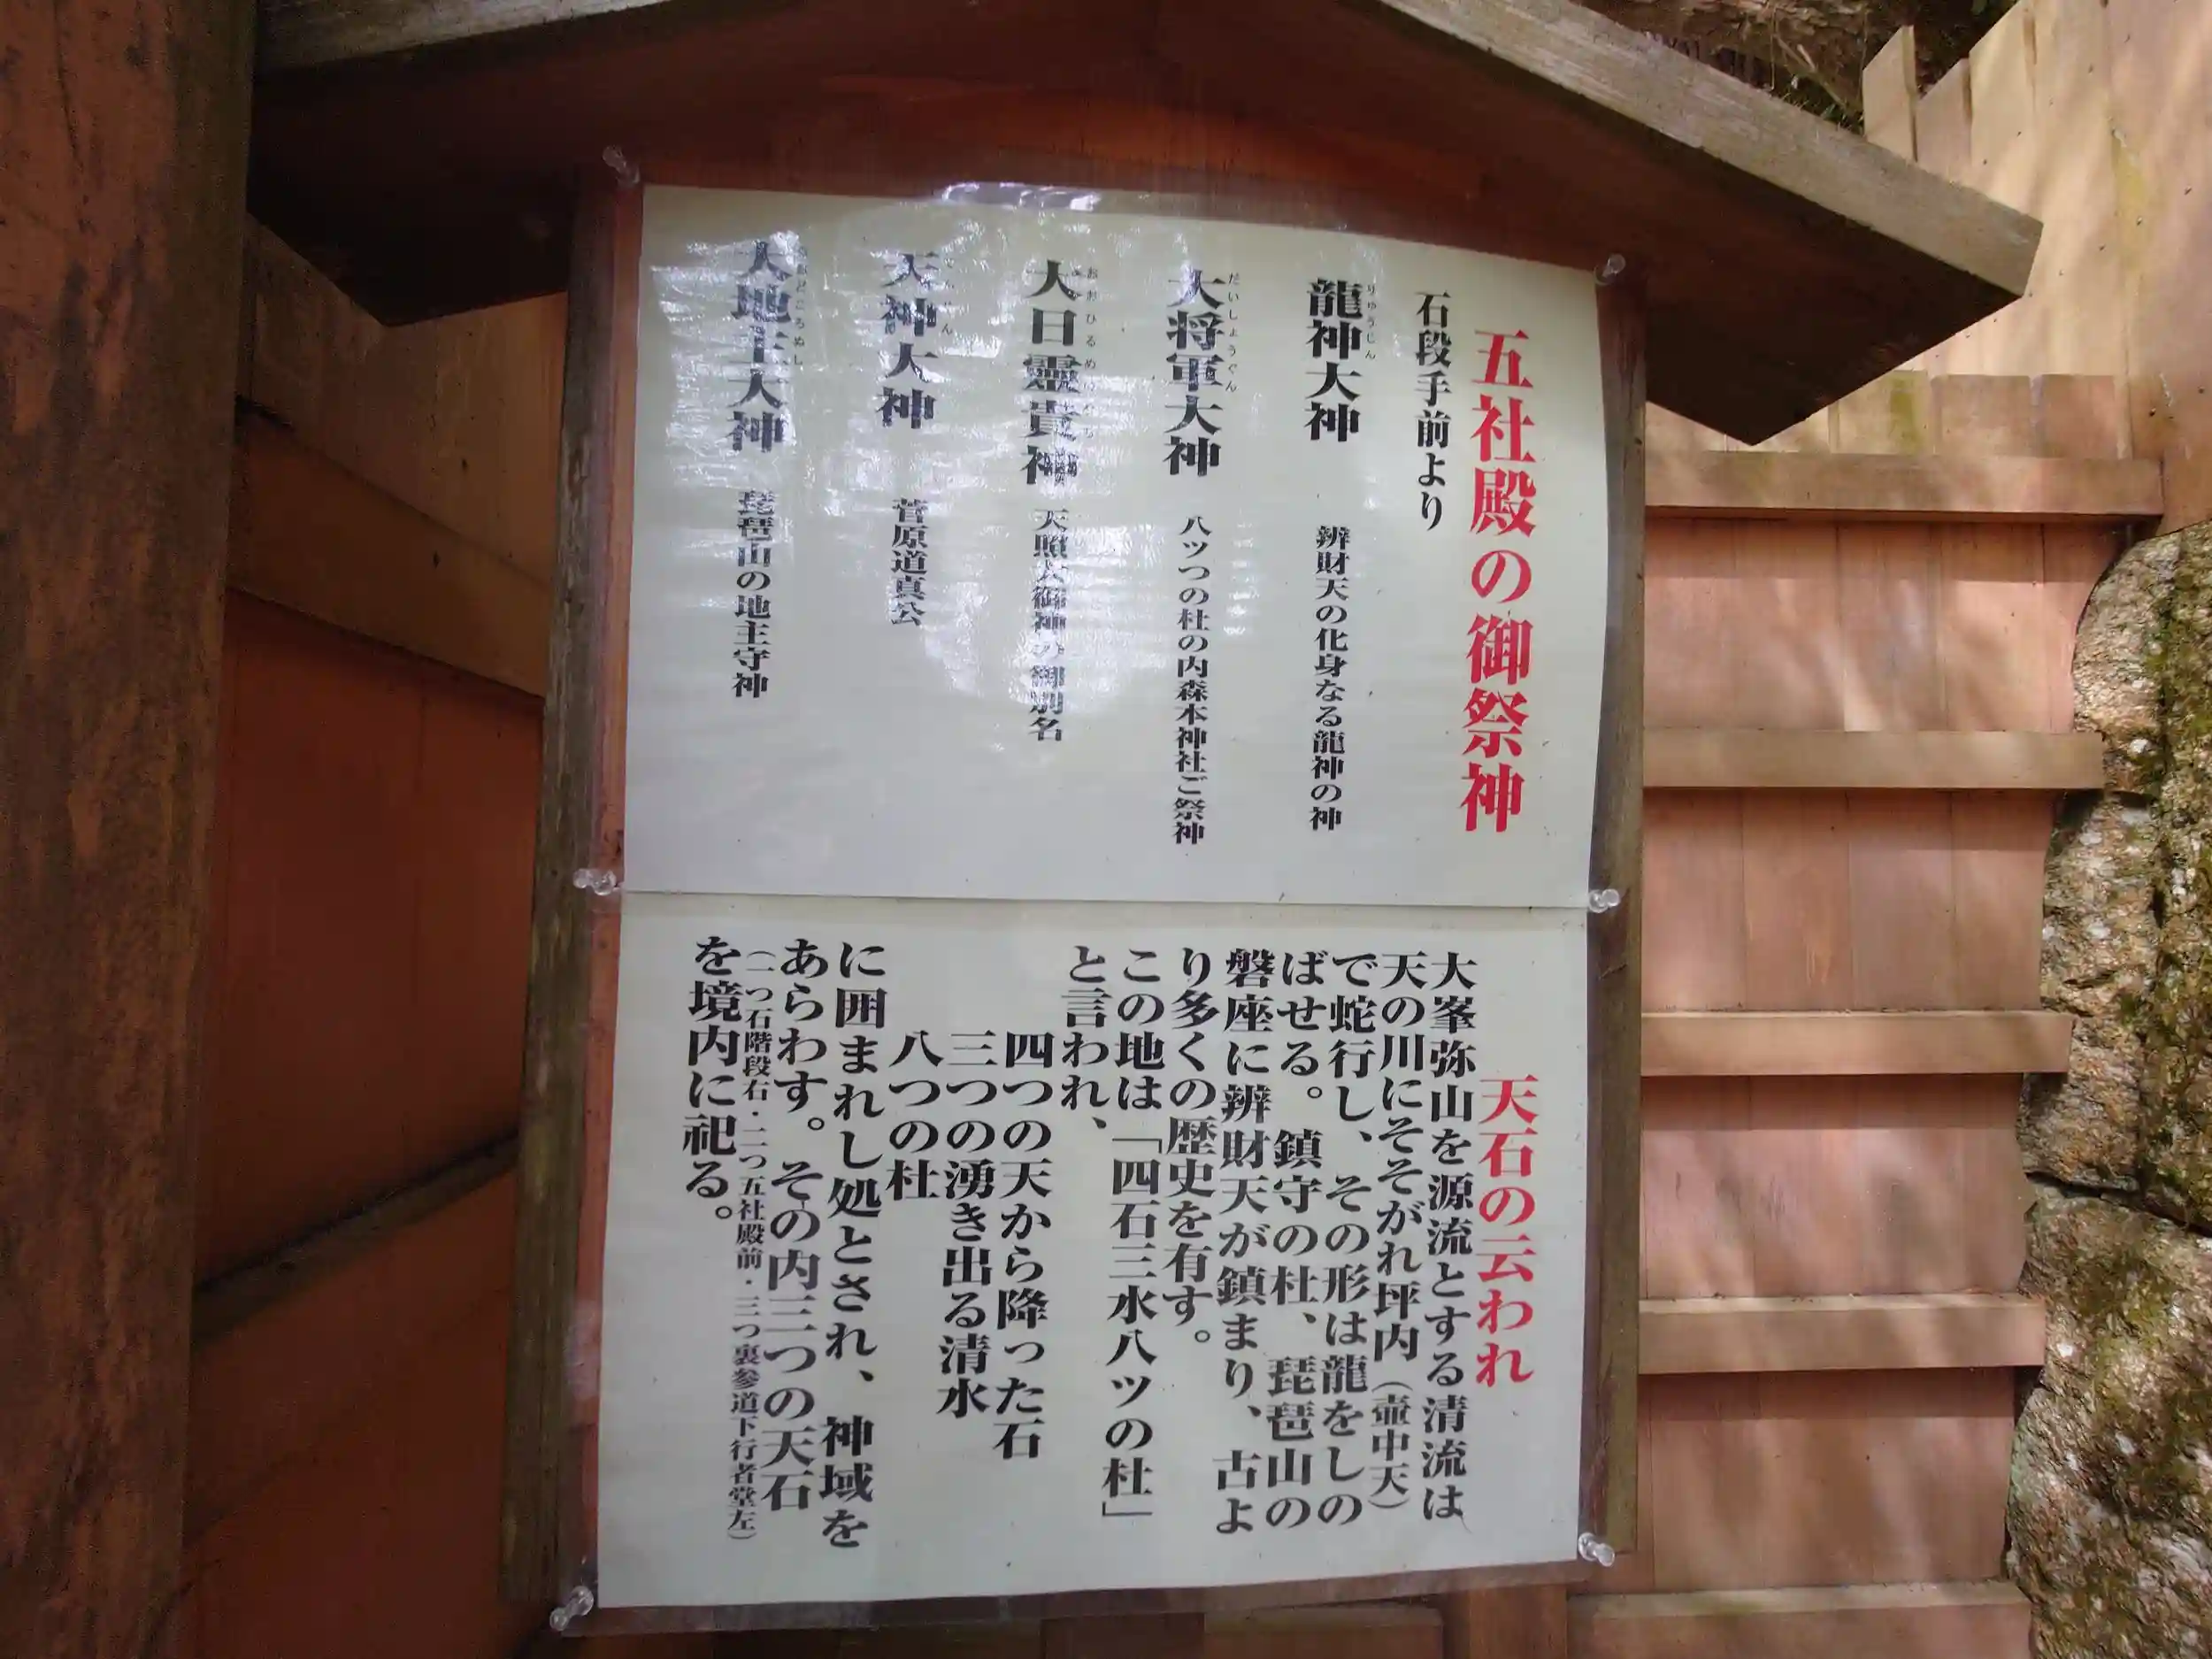 五社殿の御祭神
石段手前より
龍神大神 辨財天の化身なる龍神の神
りゅうじん
大将軍大神 八ツつの杜の内森本神社ご祭神
だいしょうぐん
大日霊貴神 天照大御神の御別名
おおひるめ
天神大神 菅原道真公
大地主大神 琵琶山の地主守神
ところぬし
天石の云われ
大峯弥山を源流とする清流は
天の川にそそがれ坪内（壷中天）
で蛇行し、その形は龍をしの
ばせる。鎮守の杜、琵琶山の
磐座に辨財天が鎮まり、古よ
り多くの歴史を有す。
この地は「四石三水八ツの杜」
と言われ、
四つの天から降った石
三つの湧き出る清水
八つの杜
に囲まれし処とされ、神域を
あらわす。その内三つの天石
（一つ石階段石・二つ五社殿前・三つ裏参道下行者堂左）
を境内に祀る。